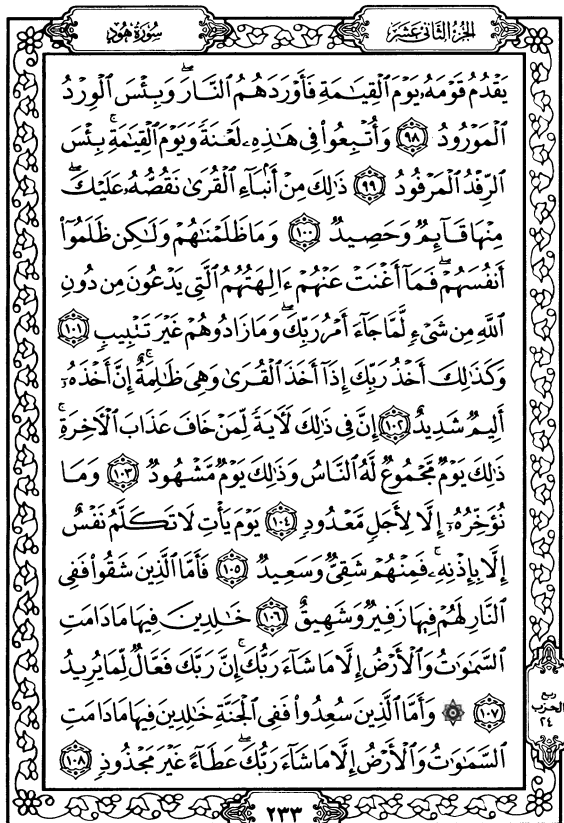 الجزء الثاني عشر
سورة هود
يَقْدُمُ قَوْمَهُۥ يَوْمَ ٱلْقِيَٰمَةِ فَأَوْرَدَهُمُ ٱلنَّارَۖ وَبِئْسَ ٱلْوِرْدُ
ٱلْمَوْرُودُ ٩٨ وَأُتْبِعُوا۟ فِى هَٰذِهِۦ لَعْنَةً وَيَوْمَ ٱلْقِيَٰمَةِۚ بِئْسَ
ٱلرِّفْدُ ٱلْمَرْفُودُ ٩٩ ذَٰلِكَ مِنْ أَنۢبَآءِ ٱلْقُرَىٰ نَقُصُّهُۥ عَلَيْكَۖ
مِنْهَا قَآئِمٌ وَحَصِيدٌ ١٠٠ وَمَا ظَلَمْنَٰهُمْ وَلَٰكِن ظَلَمُوٓا۟
أَنفُسَهُمْۖ فَمَآ أَغْنَتْ عَنْهُمْ ءَالِهَتُهُمُ ٱلَّتِى يَدْعُونَ مِن دُونِ
ٱللَّهِ مِن شَىْءٍ لَّمَّا جَآءَ أَمْرُ رَبِّكَۖ وَمَا زَادُوهُمْ غَيْرَ تَتْبِيبٍ ١٠١
وَكَذَٰلِكَ أَخْذُ رَبِّكَ إِذَآ أَخَذَ ٱلْقُرَىٰ وَهِىَ ظَٰلِمَةٌۚ إِنَّ أَخْذَهُۥٓ
أَلِيمٌ شَدِيدٌ ١٠٢ إِنَّ فِى ذَٰلِكَ لَءَايَةً لِّمَنْ خَافَ عَذَابَ ٱلْءَاخِرَةِۚ
ذَٰلِكَ يَوْمٌ مَّجْمُوعٌ لَّهُ ٱلنَّاسُ وَذَٰلِكَ يَوْمٌ مَّشْهُودٌ ١٠٣ وَمَا
نُؤَخِّرُهُۥٓ إِلَّا لِأَجَلٍ مَّعْدُودٍ ١٠٤ يَوْمَ يَأْتِ لَا تَكَلَّمُ نَفْسٌ
إِلَّا بِإِذْنِهِۦۚ فَمِنْهُمْ شَقِىٌّ وَسَعِيدٌ ١٠٥ فَأَمَّا ٱلَّذِينَ شَقُوا۟ فَفِى
ٱلنَّارِ لَهُمْ فِيهَا زَفِيرٌ وَشَهِيقٌ ١٠٦ خَٰلِدِينَ فِيهَا مَا دَامَتِ
ٱلسَّمَٰوَٰتُ وَٱلْأَرْضُ إِلَّا مَا شَآءَ رَبُّكَۚ إِنَّ رَبَّكَ فَعَّالٌ لِّمَا يُرِيدُ
١٠٧ ۞ وَأَمَّا ٱلَّذِينَ سُعِدُوا۟ فَفِى ٱلْجَنَّةِ خَٰلِدِينَ فِيهَا مَا دَامَتِ
ٱلسَّمَٰوَٰتُ وَٱلْأَرْضُ إِلَّا مَا شَآءَ رَبُّكَۖ عَطَآءً غَيْرَ مَجْذُوذٍ ١٠٨
ربع
الحزب
٢٤
٢٣٣